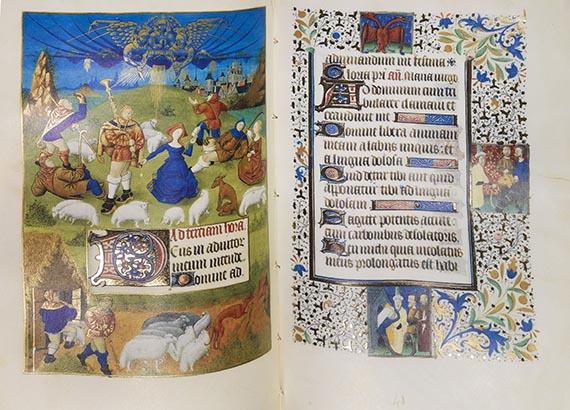 Ad tertiam hora
Deus in adiutor
meum intende
Domine ad
adiuvandum me festina
Gloria pri Añ. Maria virgo
Ad dominum cum tri
bularer clamavi et
exaudivit me
Domine libera animam
meam a labiis iniquis: et
a lingua dolosa
Quid detur tibi aut quid
apponatur tibi ad linguam
dolosam
Sagitte potentis acute
cum carbonibus desolatoriis.
Heu michi quia incolatus
meus prolongatus est habi